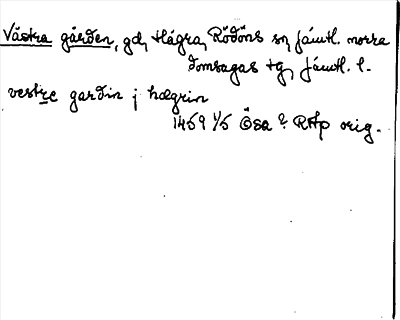 Västra gården, gd, Hägra, Rödöns sn, Jämtl. norra
domsagas tg, Jämtl. l.
vestre gardin j hægrin
1459 1/5 Ösa ? RAp orig.